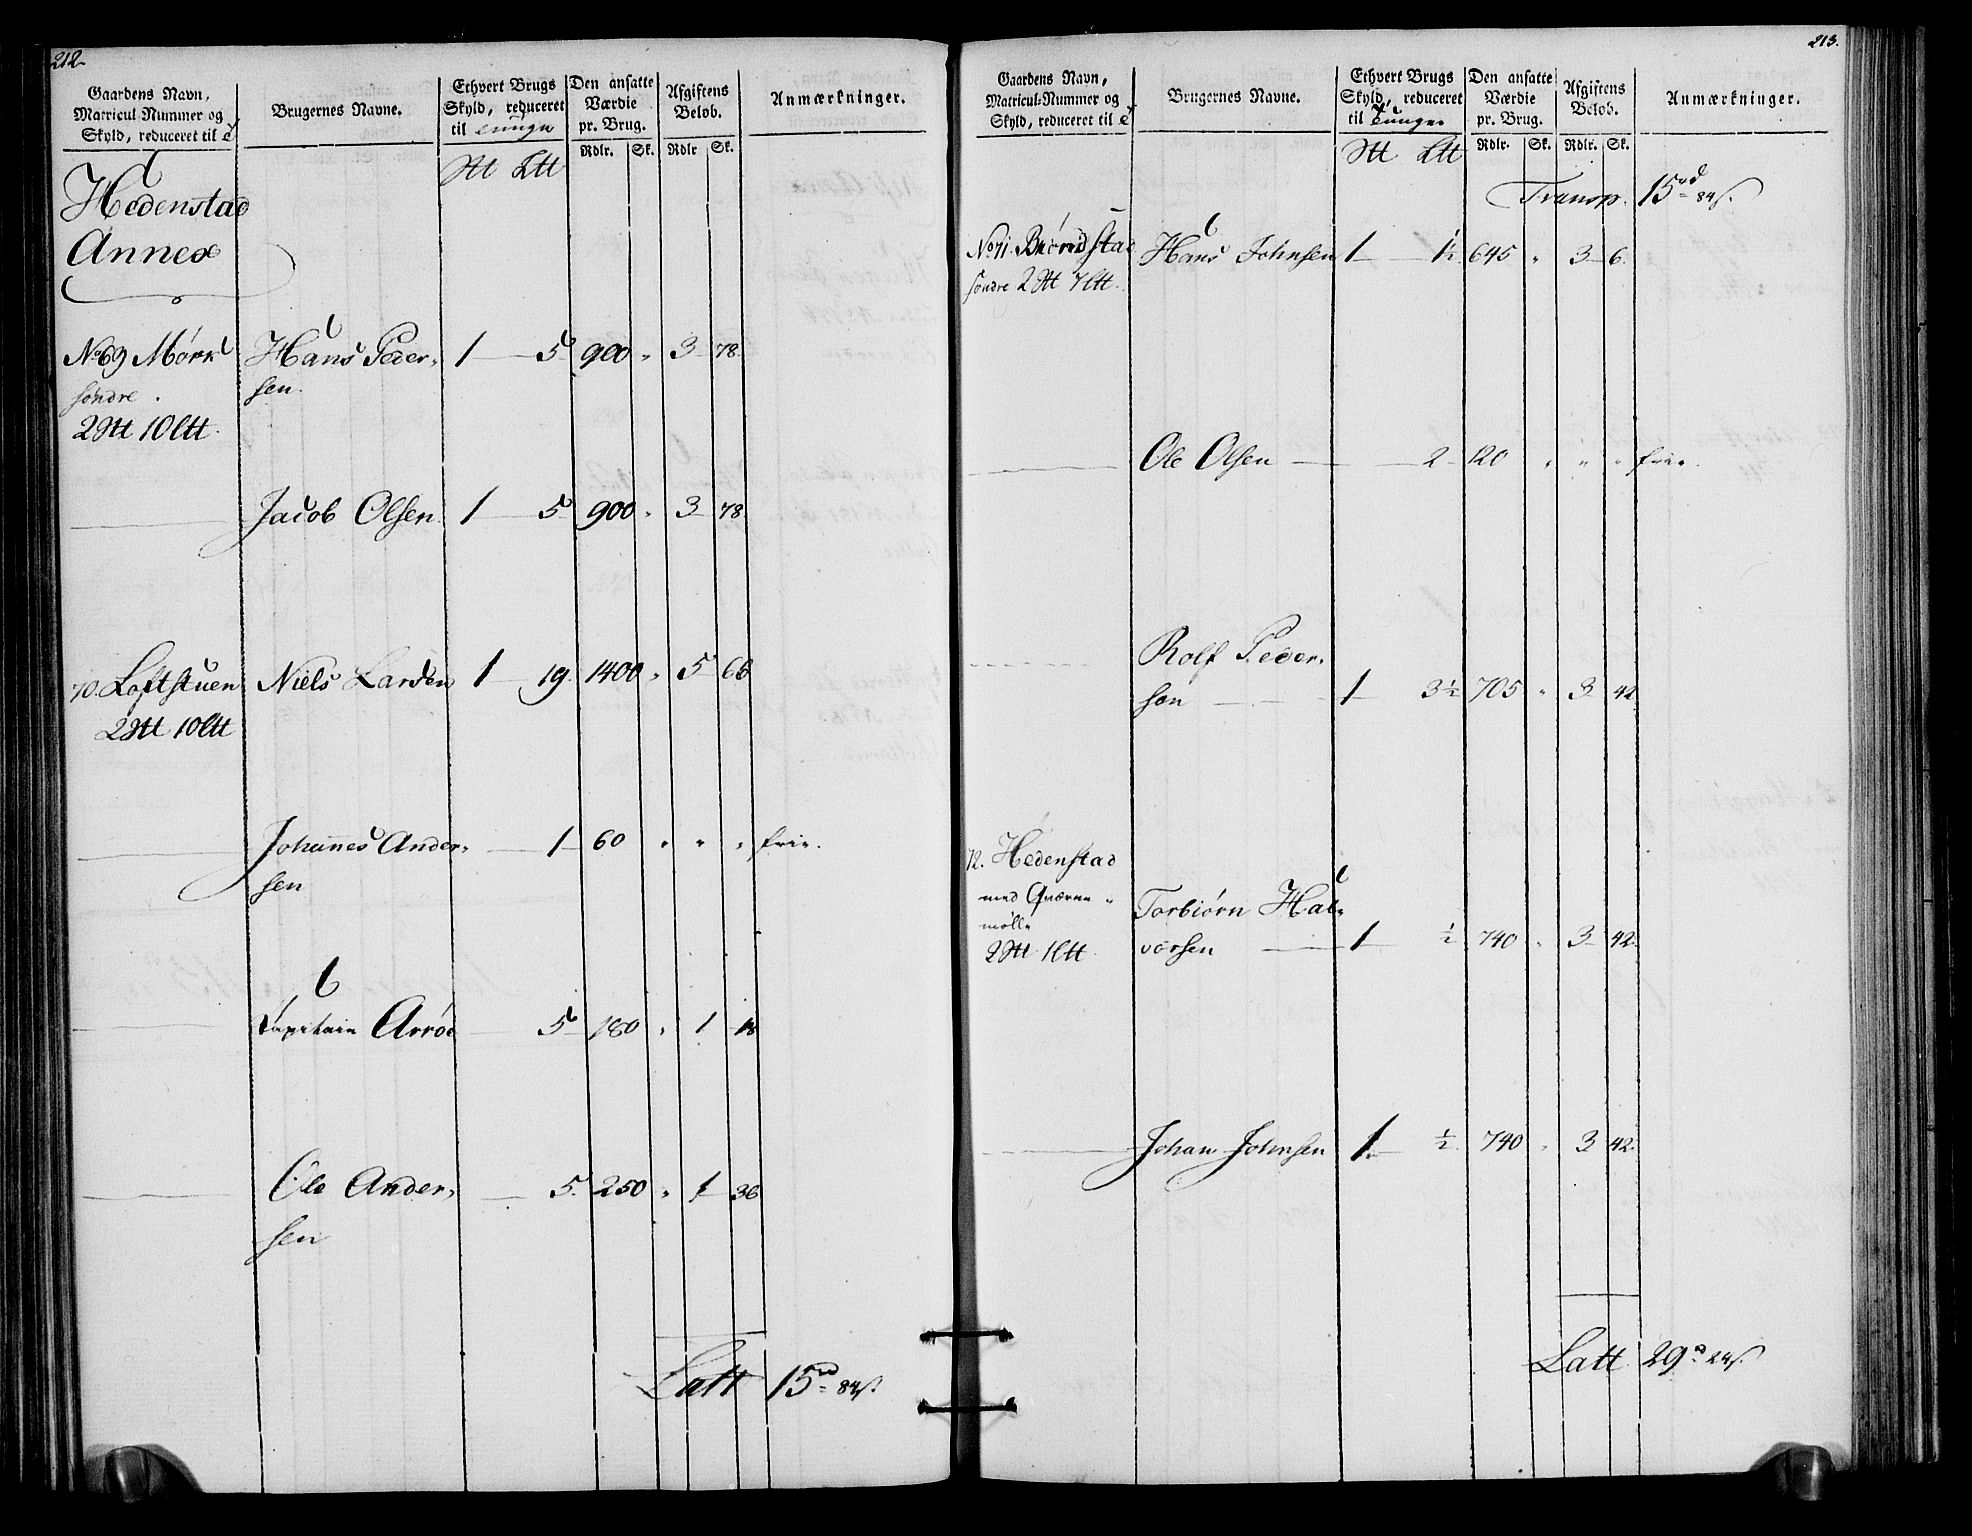 212.
Gaardens Navn,
Matricul-Nummer og
Skyld, reduceret til
Brugernes Navne.
Ethvert Brugs
Skyld, reduceret
til Tunge
Den ansatte
Værdie
pr. Brug.
Afgiftens
Beløb.
Anmærkninger.
Rdlr. Sk. Rdlr Sk.
Hedenstad
Annex
No 69 Mørk Hans Peder- 1 5 900 " 3 78.
søndre sen.
2 10
Jacob Olsen 1 5 900 " 3 78.
70. Loftstuen Niels Larsen 1 19. 1400 " 5 66
2 10
Johannes Ander- 1 60 " " " frie.
sen
Capitain Arrøe 5 180 " 1 18
Ole Ander- 5. 250 " 1 36
sen
Latt 15 84 s.
213.
Gaardens Navn,
Matricul-Nummer og
Skyld, reduceret til
Brugernes Navne.
Ethvert Brugs
Skyld, reduceret
til Tunge
Den ansatte
Værdie
pr. Brug.
Afgiftens
Beløb.
Anmærkninger.
Rdlr. Sk. Rdlr. Sk.
Transp. 15 84 s.
No 71. Hans Johnsen 1 1½ 645 " 3 6.
søndre 2 7
Ole Olsen 2 120 " " " frie.
Rolf Peder-
sen 1 3½ 705 " 3 42
72. Hedenstad
med Qværne-
mølle
Torbiørn Hal-
2 1 vorsen 1 ½ 740 " 3 42.
Johan Johnsen 1. ½ 740 " 3 42.
Latt. 29 24 s.